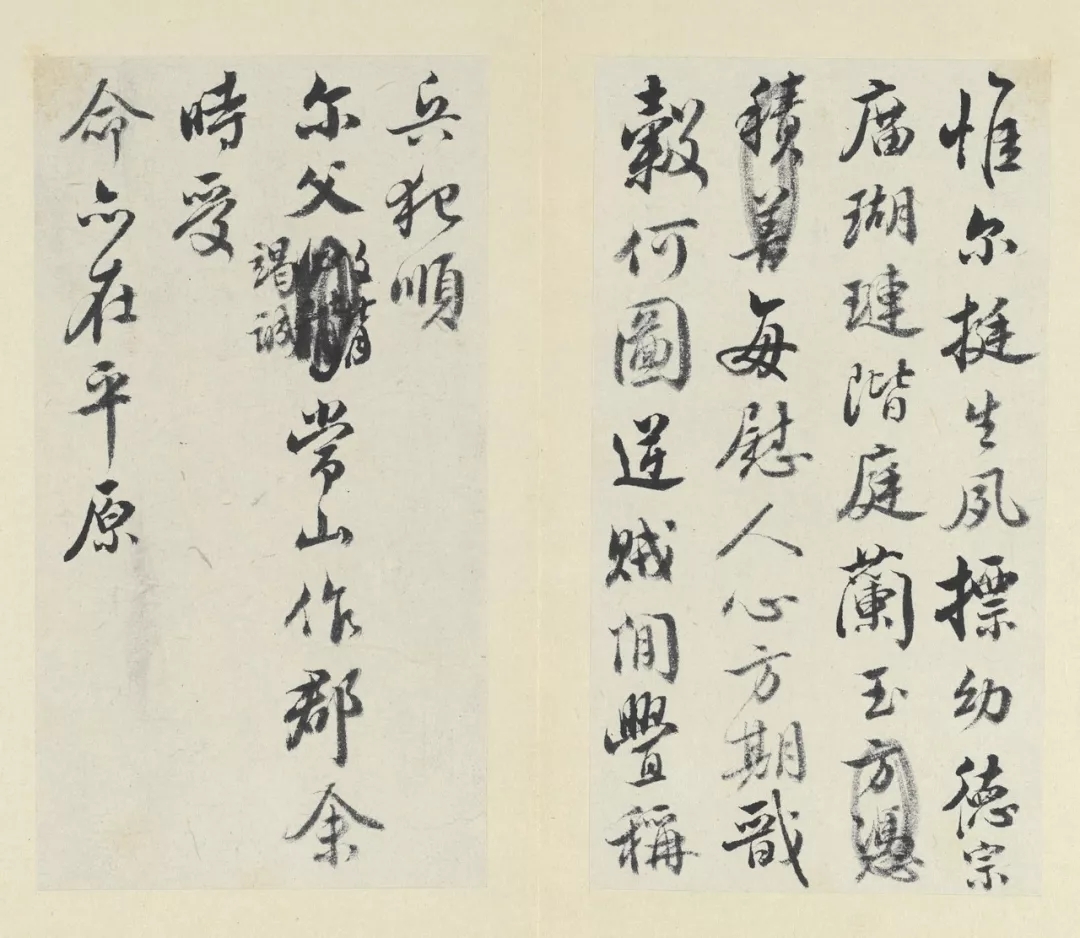 惟尔挺生夙標幼德宗
庿瑚璉階庭蘭玉方憑
積善每慰人心方期戩
穀何圖逆賊閒釁稱
兵犯順
尔父竭誠常山作郡余
時受
命亦在平原